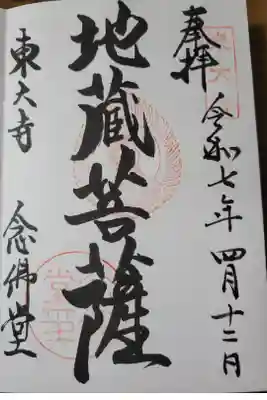 奉拝
令和七年 四月十二日
地蔵菩薩
東大寺 念佛堂